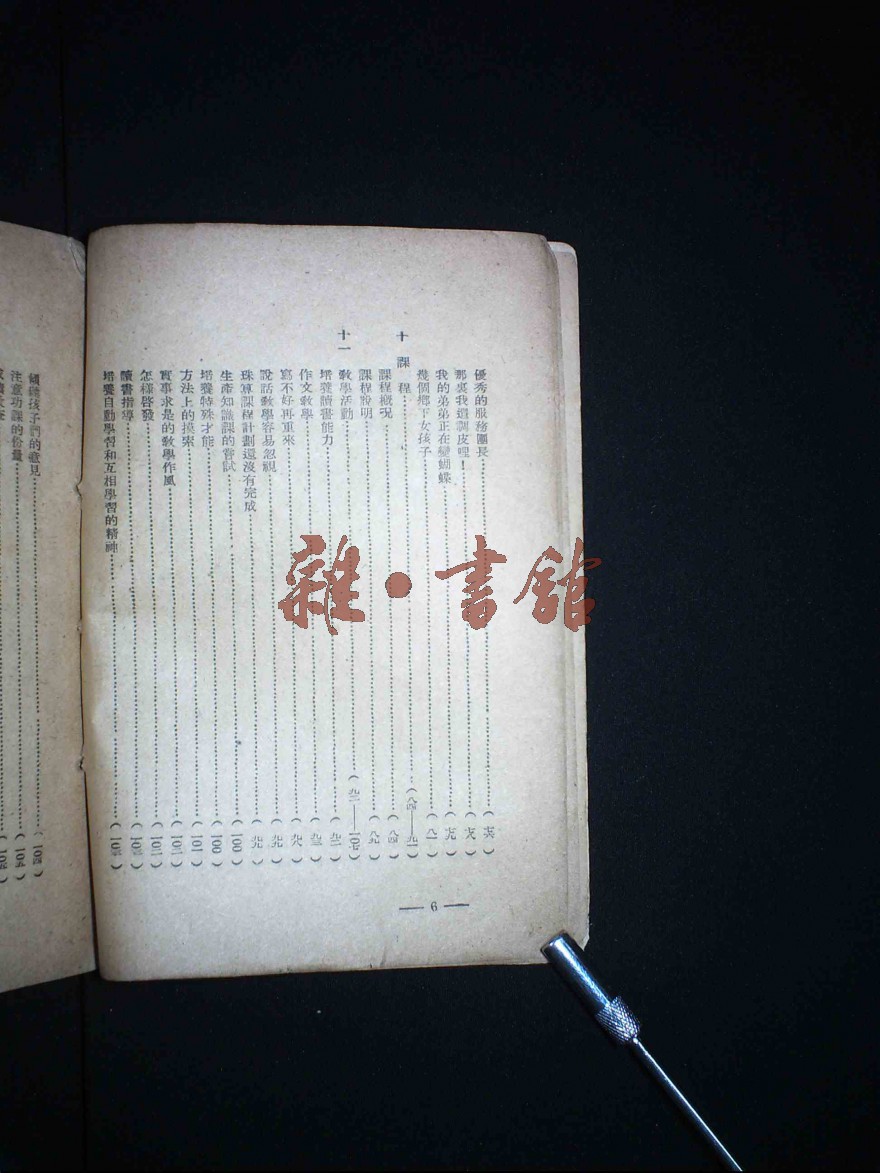 優秀的服務團長…(七六)
那裏我還調皮哩！…(七八)
我的弟弟正在變蝴蝶…(七九)
幾個鄉下女孩子…(八一)
十 課程…(八四—九一)
課程概況…(八四)
課程說明…(八九)
十一 教學活動…(九二—一〇七)
培養讀書能力…(九二)
作文教學…(九三)
寫不好再重來…(九八)
說話教學容易忽視…(九九)
珠算課程計劃還沒有完成…(九九)
生產知識課的嘗試…(一〇〇)
培養特殊才能…(一〇〇)
方法上的摸索…(一〇一)
實事求是的教學作風…(一〇二)
怎樣啓發…(一〇二)
讀書指導…(一〇三)
培養自動學習和互相學習的精神…(一〇三)
— 6 —
傾聽孩子們的意見…(一〇四)
注意功課的份量…(一〇五)
雜·書館